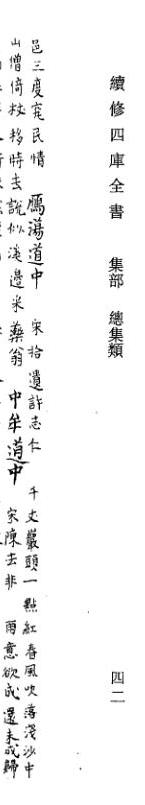 續修四庫全書 集部 總集類 四二
邑三度寃民情 鴈蕩道中 宋拾遺許志仁 千丈巖頭一點紅春風吹落淺沙中
山僧倚杖移時去說似溪邊采藥翁 中牟道中 宋陳去非 雨意欲成還未成歸